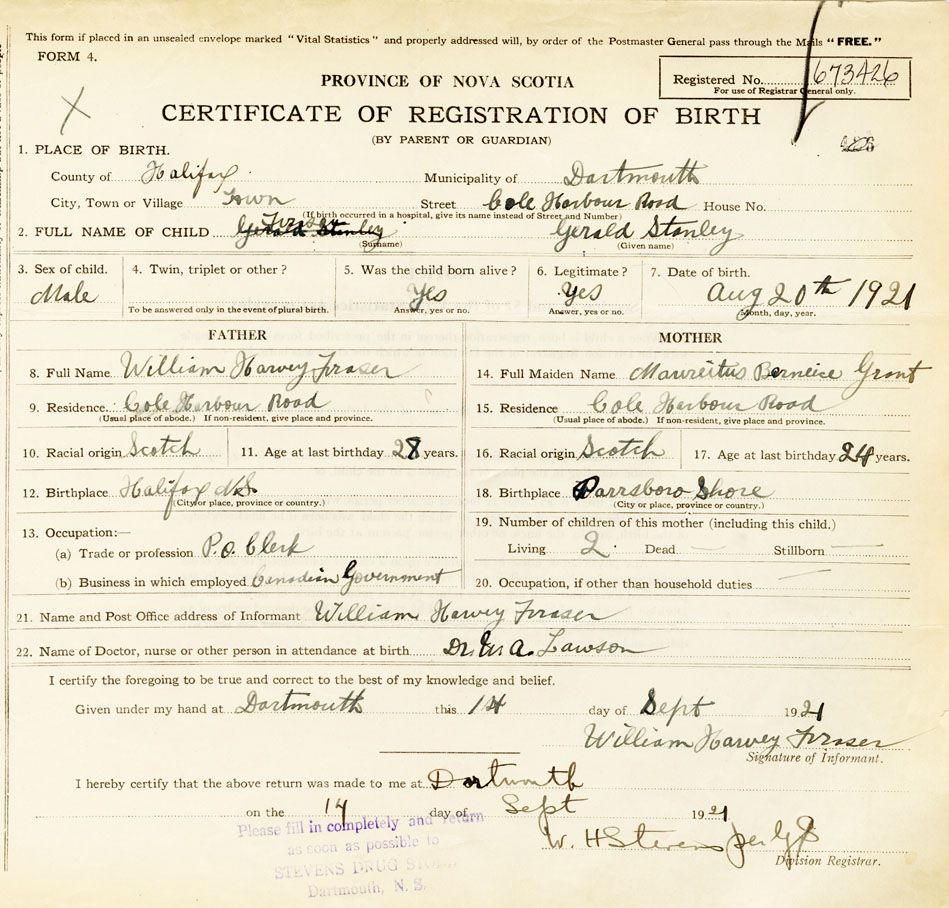 This form if placed in an unsealed envelope marked "Vital Statistics" and properly addressed will, by order of the Postmaster General pass through the Mails "FREE."
FORM 4.
PROVINCE OF NOVA SCOTIA
Registered No. 673426
For use of Registrar General only.
CERTIFICATE OF REGISTRATION OF BIRTH
(BY PARENT OR GUARDIAN)
1. PLACE OF BIRTH.
County of Halifax Municipality of Dartmouth
City, Town or Village Town Street Cole Harbour Road House No.
(If birth occurred in a hospital, give its name instead of Street and Number)
2. FULL NAME OF CHILD Fraser Gerald Stanley Gerald Stanley
(Surname) (Given name)
3. Sex of child. 4. Twin, triplet or other? 5. Was the child born alive? 6. Legitimate? 7. Date of birth.
Male Yes Yes Aug 20th 1921
To be answered only in the event of plural birth. Answer, yes or no. Answer, yes or no. Month, day, year.
FATHER MOTHER
8. Full Name William Harvey Fraser 14. Full Maiden Name Maureitus Berneice Grant
9. Residence. Cole Harbour Road 15. Residence Cole Harbour Road
(Usual place of abode.) If non-resident, give place and province. (Usual place of abode.) If non-resident, give place and province.
10. Racial origin Scotch 11. Age at last birthday 28 years. 16. Racial origin Scotch 17. Age at last birthday 24 years.
12. Birthplace Halifax N.S. 18. Birthplace Parrsboro Shore
(City or place, province or country.) (City or place, province or country.)
13. Occupation:— 19. Number of children of this mother (including this child.)
(a) Trade or profession P.O. Clerk Living 2 Dead — Stillborn —
(b) Business in which employed Canadian Government 20. Occupation, if other than household duties —
21. Name and Post Office address of Informant William Harvey Fraser
22. Name of Doctor, nurse or other person in attendance at birth Dr. A. Lawson
I certify the foregoing to be true and correct to the best of my knowledge and belief.
Given under my hand at Dartmouth this 14 day of Sept 1921
William Harvey Fraser
Signature of Informant.
I hereby certify that the above return was made to me at Dartmouth
on the 14 day of Sept 1921
Please fill in completely and return
as soon as possible to
STEVENS DRUG STORE
Dartmouth, N. S.
W. H Stevens per
Division Registrar.